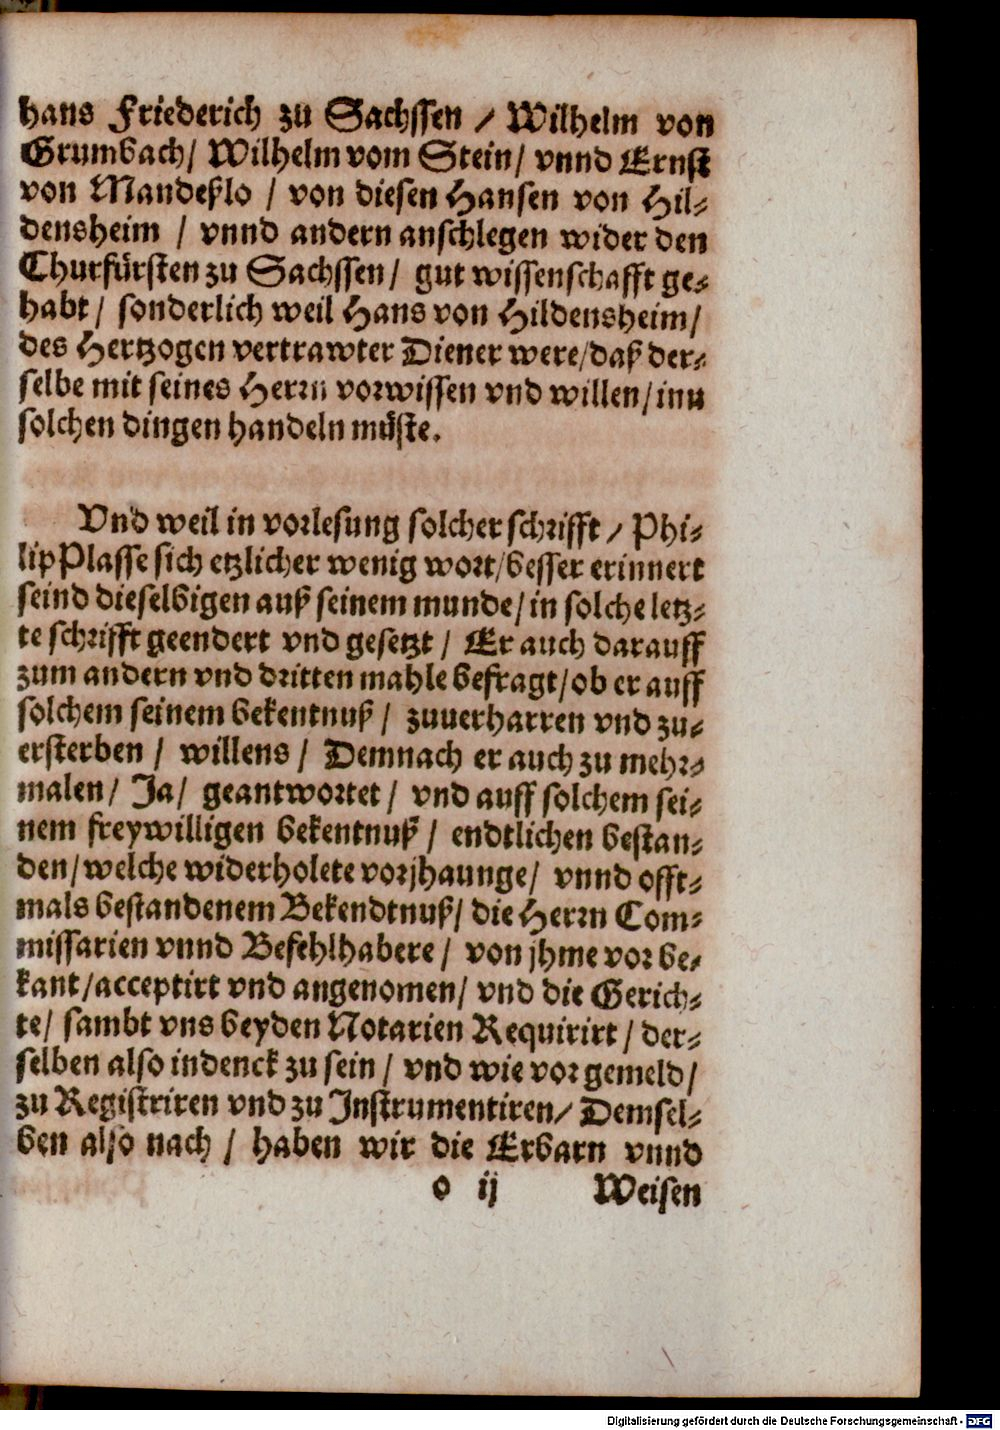 hans Friederich zu Sachssen / Wilhelm von
Grumbach/ Wilhelm vom Stein/ vnnd Ernst
von Mandeßlo / von diesen Hansen von Hil-
densheim / vnnd andern anschlegen wider den
Churfürsten zu Sachssen/ gut wissenschafft ge-
habt/ sonderlich weil Hans von Hildensheim/
des Hertzogen vertrawter Diener were/daß der-
selbe mit seines Herrn vorwissen vnd willen/inn
solchen dingen handeln müste.
Vnd weil in vorlesung solcher schrifft/ Phi-
lip Plasse sich etzlicher wenig wort/besser erinnert
seind dieselbigen auß seinem munde/in solche letz-
te schrifft geendert vnd gesetzt/ Er auch darauff
zum andern vnd dritten mahle befragt/ob er auff
solchem seinem bekentnuß/ zuuerharren vnd zu-
ersterben / willens/ Demnach er auch zu mehr-
malen/ Ja/ geantwortet/ vnd auff solchem sei-
nem freywilligen bekentnuß/ endtlichen bestan-
den/welche widerholete vorjhaunge/ vnnd offt-
mals bestandenem Bekendtnuß/ die Herrn Com-
missarien vnnd Befehlhabere/ von jhme vor be-
kant/acceptirt vnd angenomen/ vnd die Gerich-
te/ sambt vns beyden Notarien Requirirt/ der-
selben also indenck zu sein/ vnd wie vor gemeld/
zu Registriren vnd zu Instrumentiren/ Demsel-
ben also nach / haben wir die Erbarn vnnd
o ij Weisen
Digitalisierung gefördert durch die Deutsche Forschungsgemeinschaft - DFG